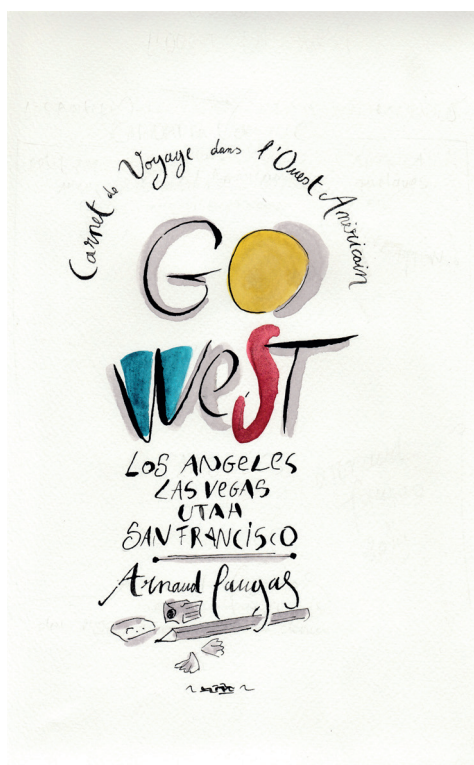 Carnet de Voyage dans l'Ouest Américain
GO
WeST
LOS ANGELES
LAS VEGAS
UTAH
SAN FRANCISCO
Arnaud